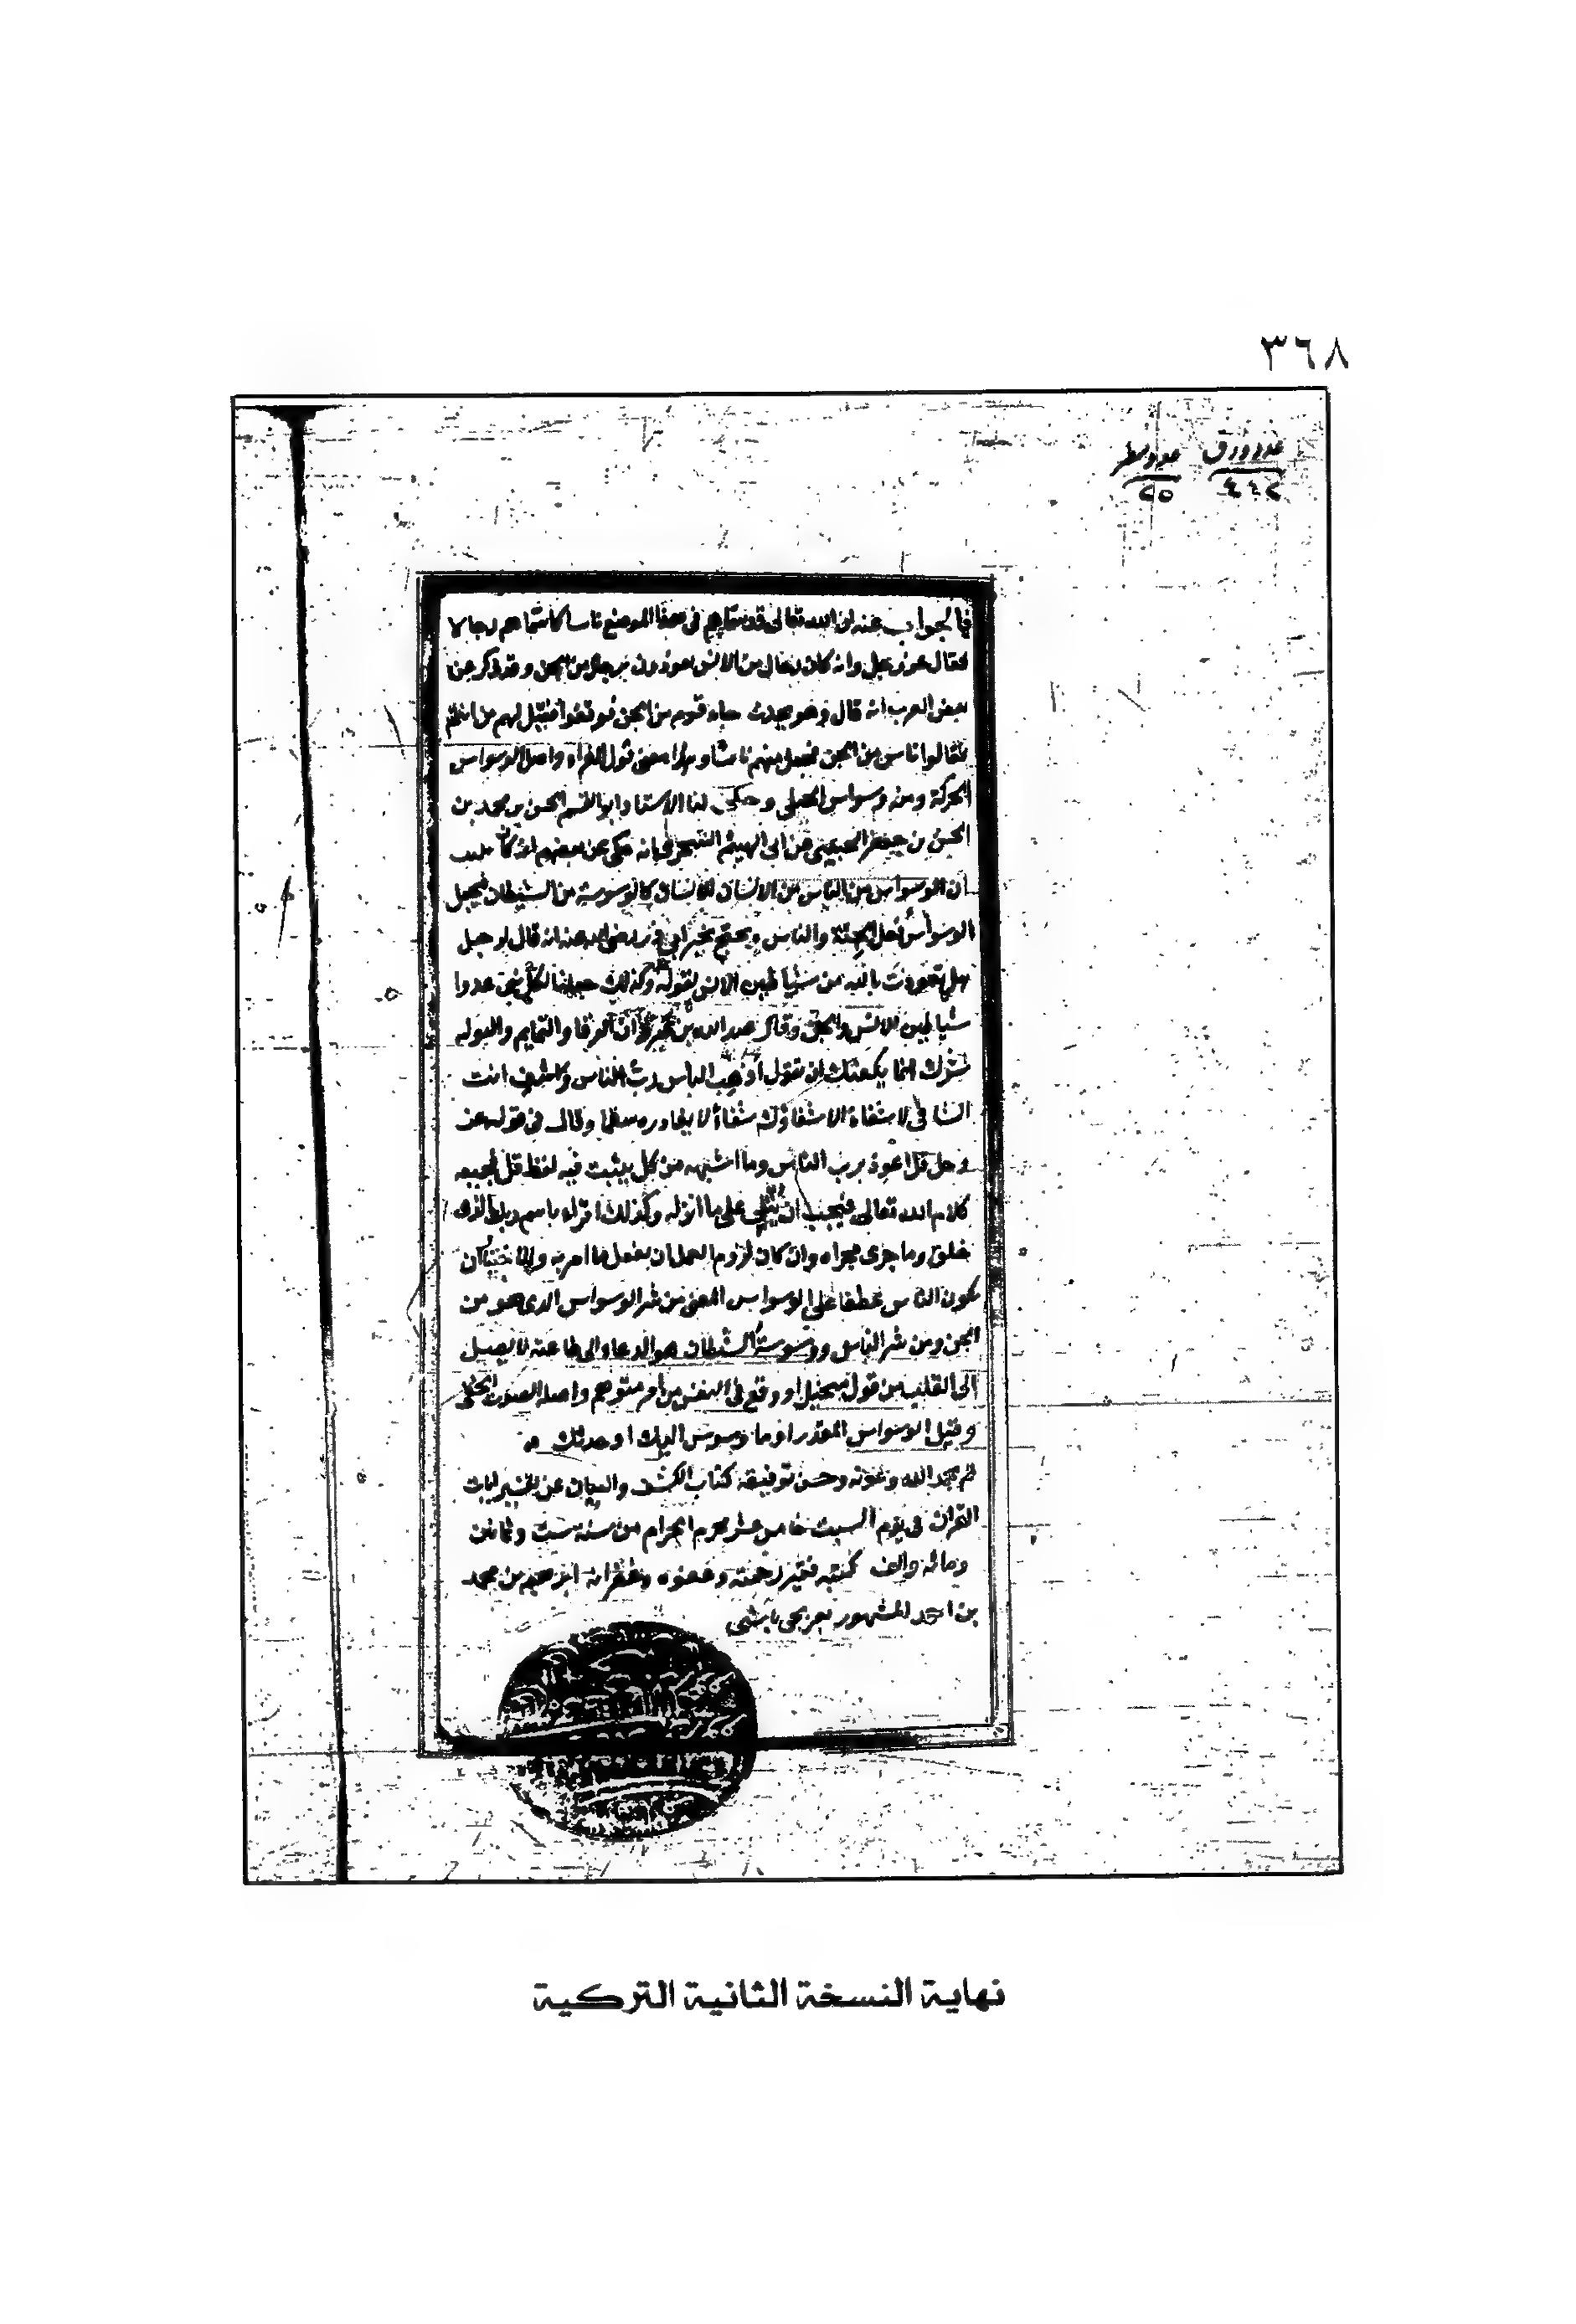 ٣٦٨
عدد ورق عدد سطر
٤٤٢ ٢٥
فالجواب عنه ان الله تعالى قد سماهم في هذا الموضع ناسا كما سماهم رجالا
فقال عز وجل وانه كان رجال من الانس يعوذون برجال من الجن وقد ذكر عن
بعض العرب انه قال وهو يحدث جاء قوم من الجن فوقفوا فقيل لهم من انتم
فقالوا ناس من الجن فجعل منهم ناسا وهذا معنى قول الفراء واصل الوسواس
الحركة ومنه وسواس الحلي وحكى لنا الاستاذ ابو القسم الحسن بن محمد بن
الحسن بن جعفر عن ابي الهيثم السجزي انه حكى عن بعضهم انه كان
ان الوسواس من الناس من الانسان للانسان كالوسوسة من الشيطان فجعل
الوسواس فعل الجنة والناس ويحتج بخبر ابي ذر رضي الله عنه انه قال لرجل
هل تعوذت بالله من شياطين الانس لقوله وكذلك جعلنا لكل نبي عدوا
شياطين الانس والجن وقال عبد الله بن ان الرقا والتمايم والتوله
شرك انما يكفيك ان تقول اذهب الباس رب الناس واشف انت
الشافي لا شفاء الا شفاؤك شفاء لا يغادر سقما وقال في قوله عز
وجل قل اعوذ برب الناس وما اشبهه من كل يثبت فيه لفظ قل لجميعه
كلام الله تعالى فيجب ان يتلى على ما انزله وكذلك اقرا باسم ربك الذي
خلق وما جرى مجراه وان كان لزوم العمل ان يفعل ما امر به
يكون الناس عطفا على الوسواس المعنى من شر الوسواس الذي هو من
الجن ومن شر الناس ووسوسة الشيطان هو الدعاء الى طاعته لا يصل
الى القلب من قول متخيل او وقع في النفس من امر متوهم واصله الصوت الخفي
وقيل الوسواس ما وسوس اليك او حدثك
تم بحمد الله وعونه وحسن توفيقه كتاب الكشف والبيان عن تفسير ايات
القران في يوم السبت خامس عشر محرم الحرام من سنة ست وثمانين
ومائه والف كتبه فقير رحمته وعفوه وغفرانه ابراهيم بن محمد
بن احمد المشهور بعربجي باشي
نهاية النسخة الثانية التركية